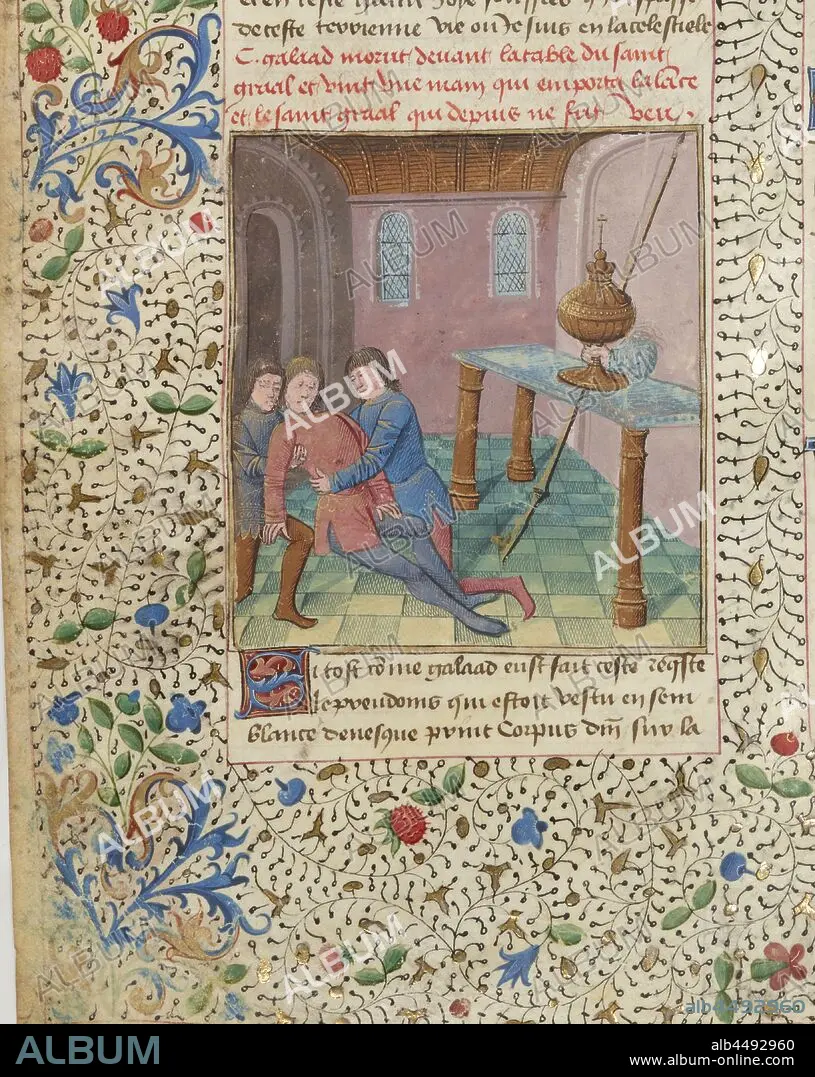 de ceste terrienne vie ou Je suis en la celestiele
C. galaad morut devant la table du saint
graal et vint une main qui emporta la lance
et le saint graal qui depuis ne fut veu.
Si tost cõme galaad eust fait ceste reqste
le preudoms qui estoit vestu en sem
blance devesque prinst Corpus dnĩ sur la
ALBUM
alb4492960
ALBUM
alb4492960
www.album-online.com